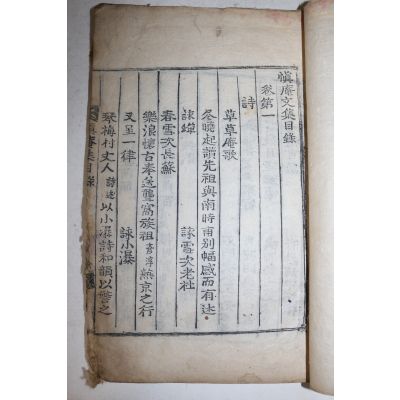 愼庵文集目錄
卷第一
詩
草草庵歌
冬曉起讀先祖與南時甫別幅感而有述
詠蟬 詠雪次老杜
春雪次長蘇
樂浪懷古奉送聾窩族祖 赴京之行
又呈一律 詠小瀑
琴梅村丈人 詩述 以小瀑詩和韻以 之
庵集目錄